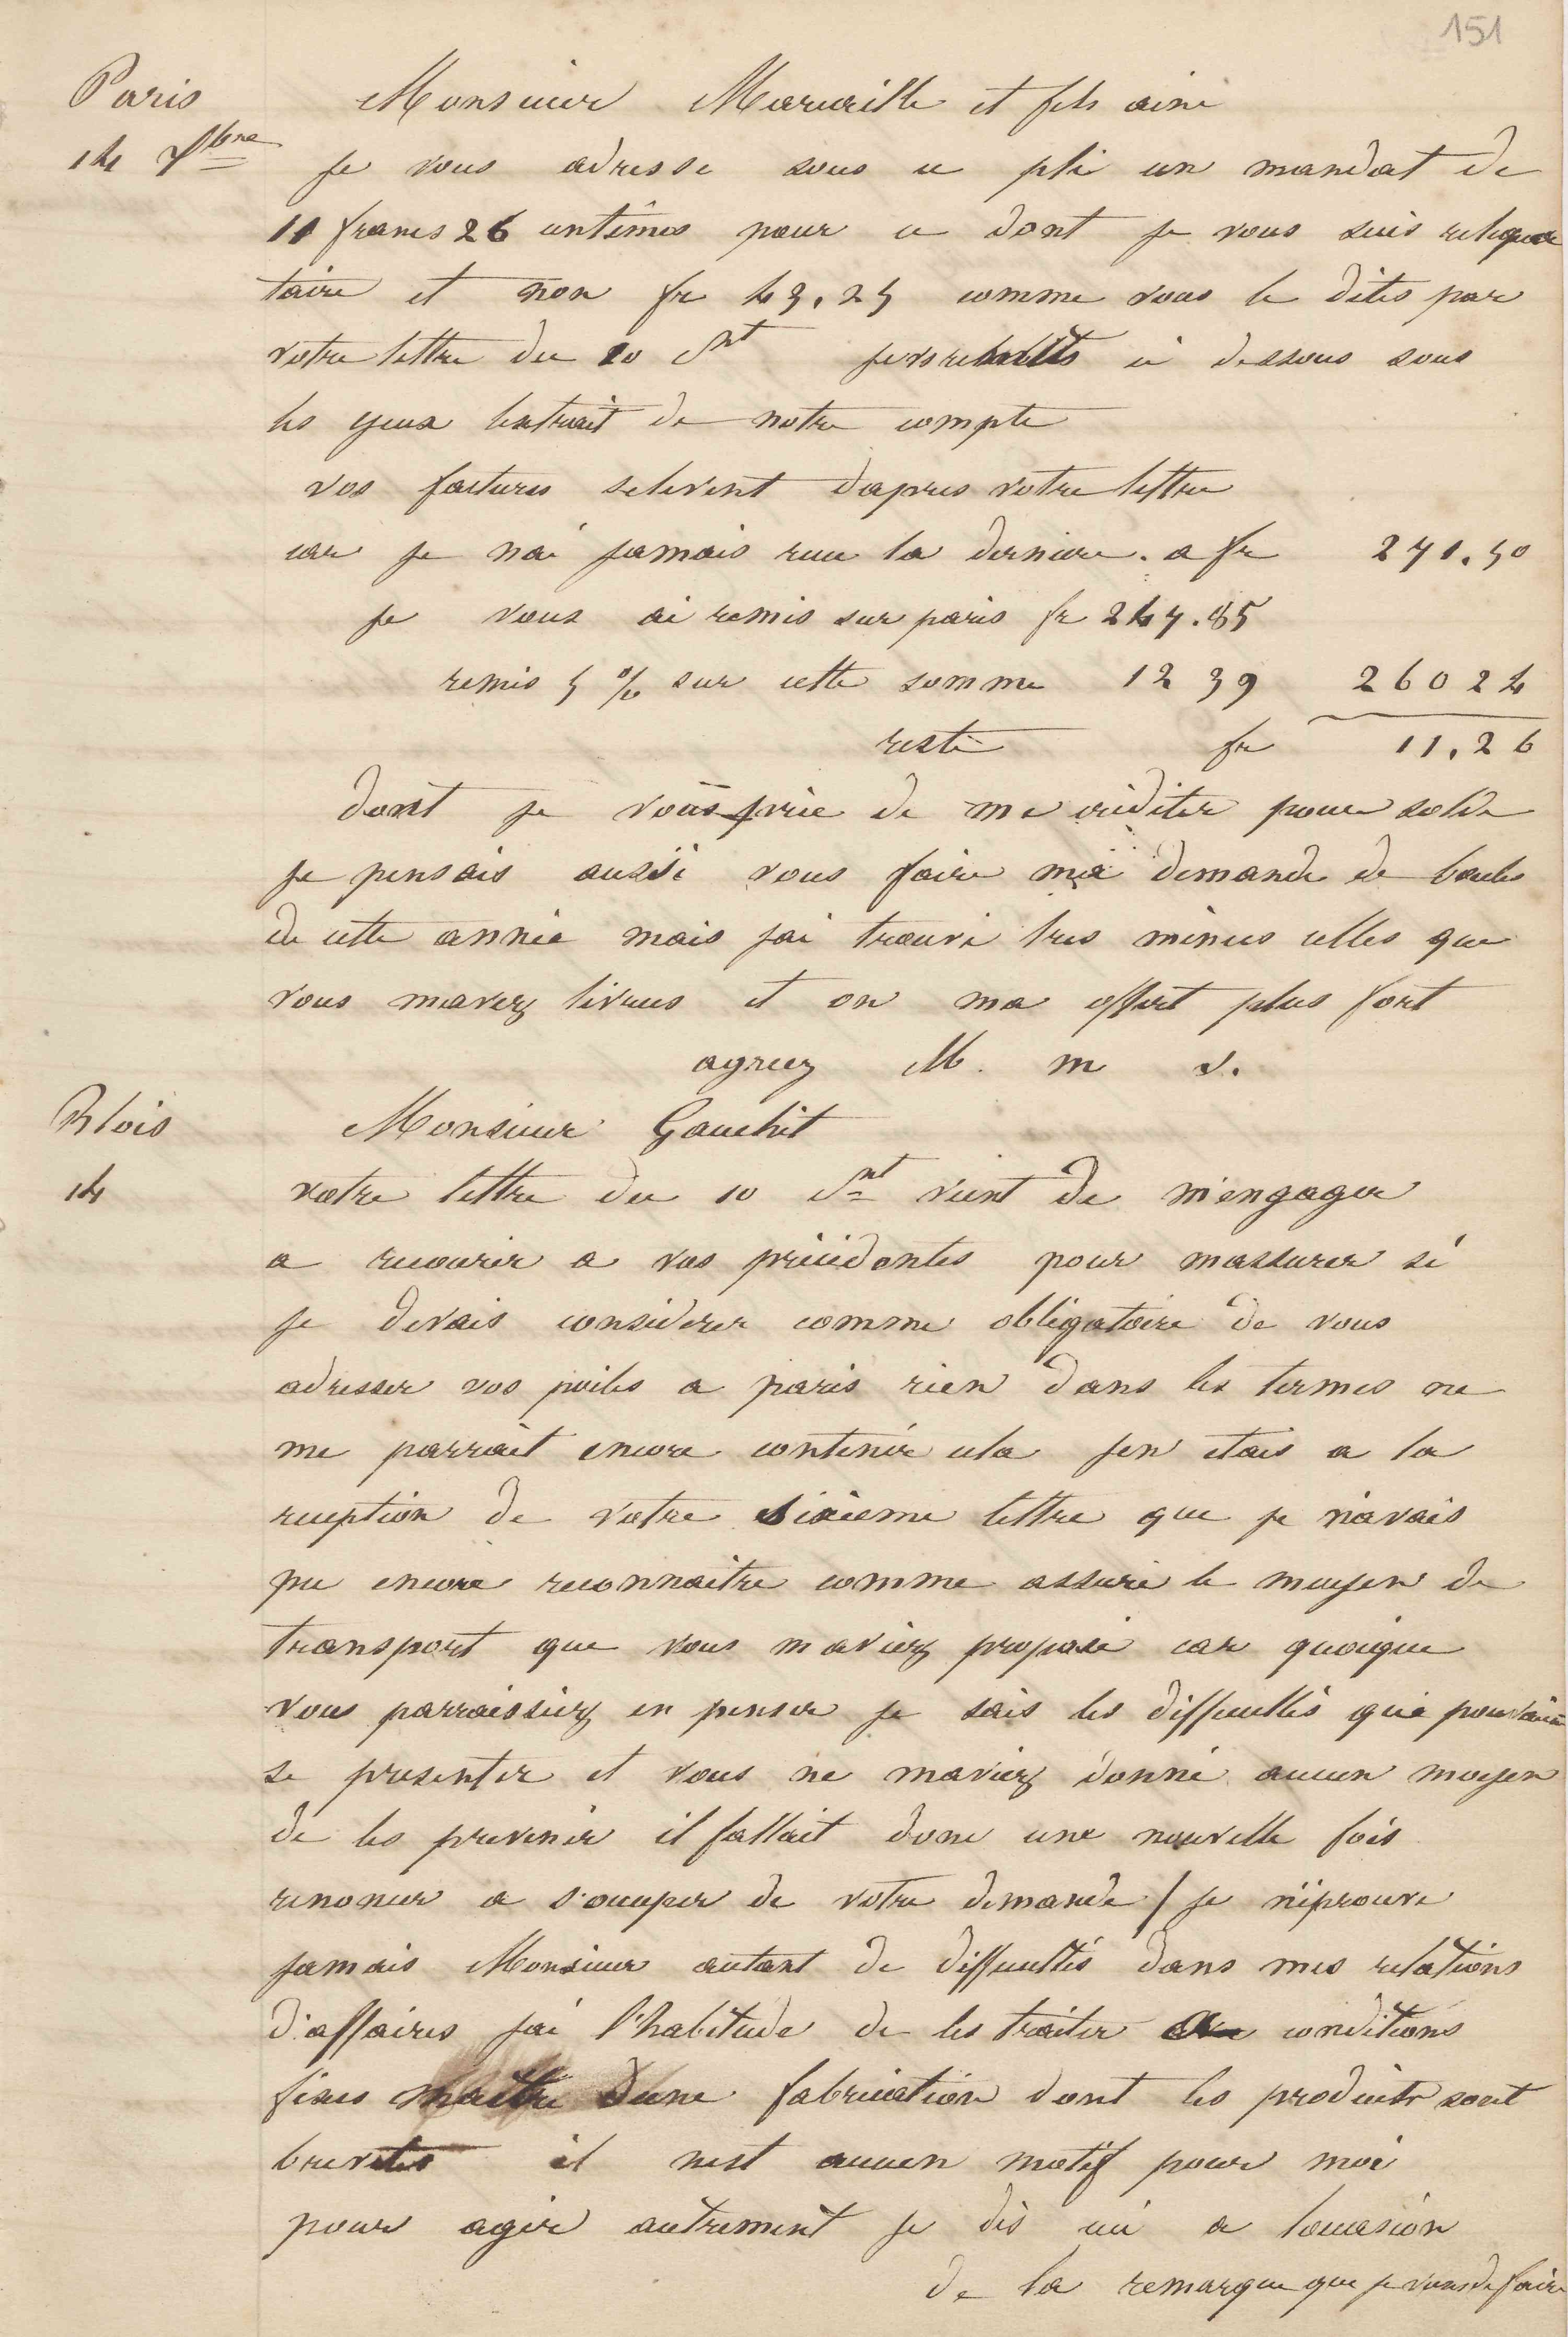 151
Paris
14 7bre
Monsieur Maruaille et fils ainé
Je vous adresse sous ce pli un mandat de
11 francs 26 centimes pour ce dont je vous suis reliqua
taire et non fr 43.25 comme vous le dites par
votre lettre du 10 Ct je vs remets ci dessous sous
les yeux lextrait de notre compte
vos factures selevent dapres votre lettre
car je nai jamais recu la derniere. a fr 271.50
je vous ai remis sur paris fr 247.85
remis 5 % sur cette somme 12 39 260 24
reste fr 11.26
dont je vous prie de me créditer pour solde
je pensais aussi vous faire ma demande de boules
de cette année mais jai trouvé tres minces celles que
vous mavez livrees et on ma offert plus fort
agreez M. m s.
Blois
14
Monsieur Gauchit
votre lettre du 10 Ct vient de m'engager
a recourir a vos précédentes pour massurer si
je devais considerer comme obligatoire de vous
adresser vos poiles a paris rien dans les termes ne
me parrait encore contenir cela jen etais a la
reception de votre sixieme lettre que je n'avais
pu encore reconnaitre comme assuré le moyen de
transport que vous m aviez proposé car quoique
vous parraissiez en penser je sais les difficultés qui pouvaient
se presenter et vous ne maviez donné aucun moyen
de les prevenir il fallait donc une nouvelle fois
renoncer a s'occuper de votre demande / je n'éprouve
jamais Monsieur autant de difficultés dans mes relations
d'affaires jai l'habitude de les traiter a conditions
fixes maitre dune fabrication dont les produits sont
brevetes il nest aucun motif pour moi
pour agir autrement je dis ici a loccasion
de la remarque que je viens de faire